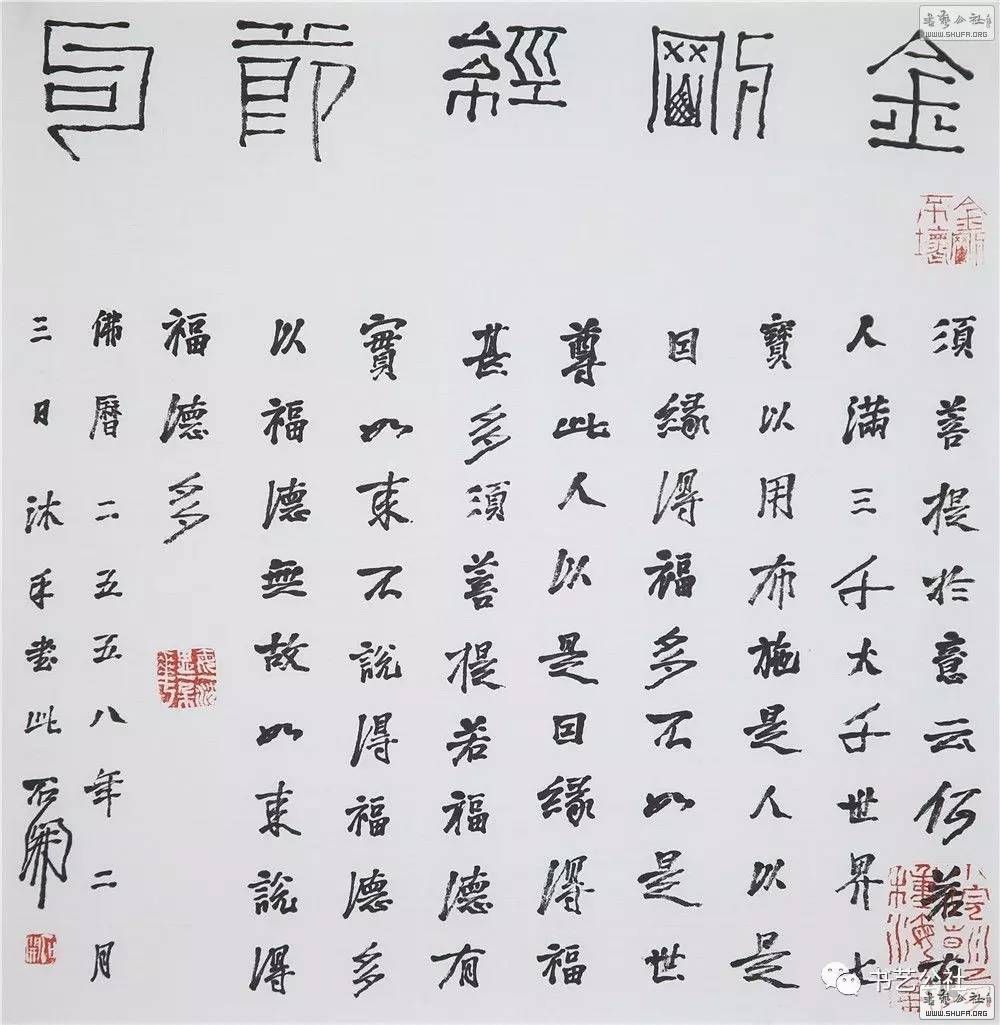 金剛經節
金剛不壞
須菩提於意云何若有
人滿三千大千世界七
寶以用布施是人以是
因緣得福多不如是世
尊此人以是因緣得福
甚多須菩提若福德有
實如來不說得福德多
以福德無故如來說得
福德多
佛曆二五五八年二月
三日沐手書此石開
石開
书艺公社
WWW.SHUFA.ORG
书艺公社
WWW.SHUFA.ORG